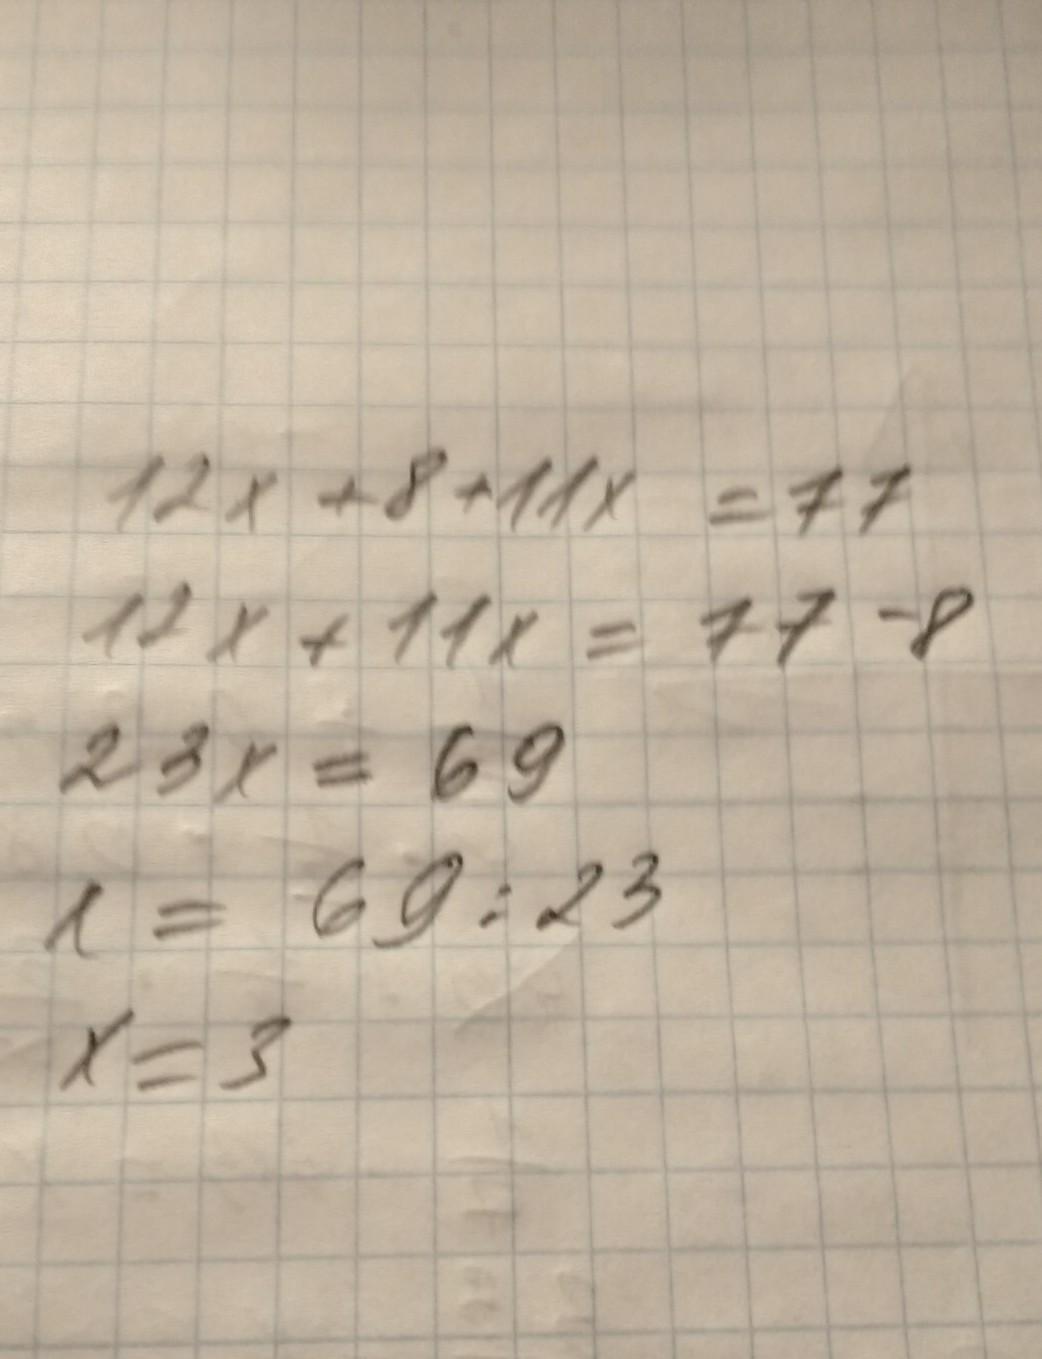 12x + 8 + 11x = 77
12x + 11x = 77 - 8
23x = 69
x = 69 : 23
x = 3